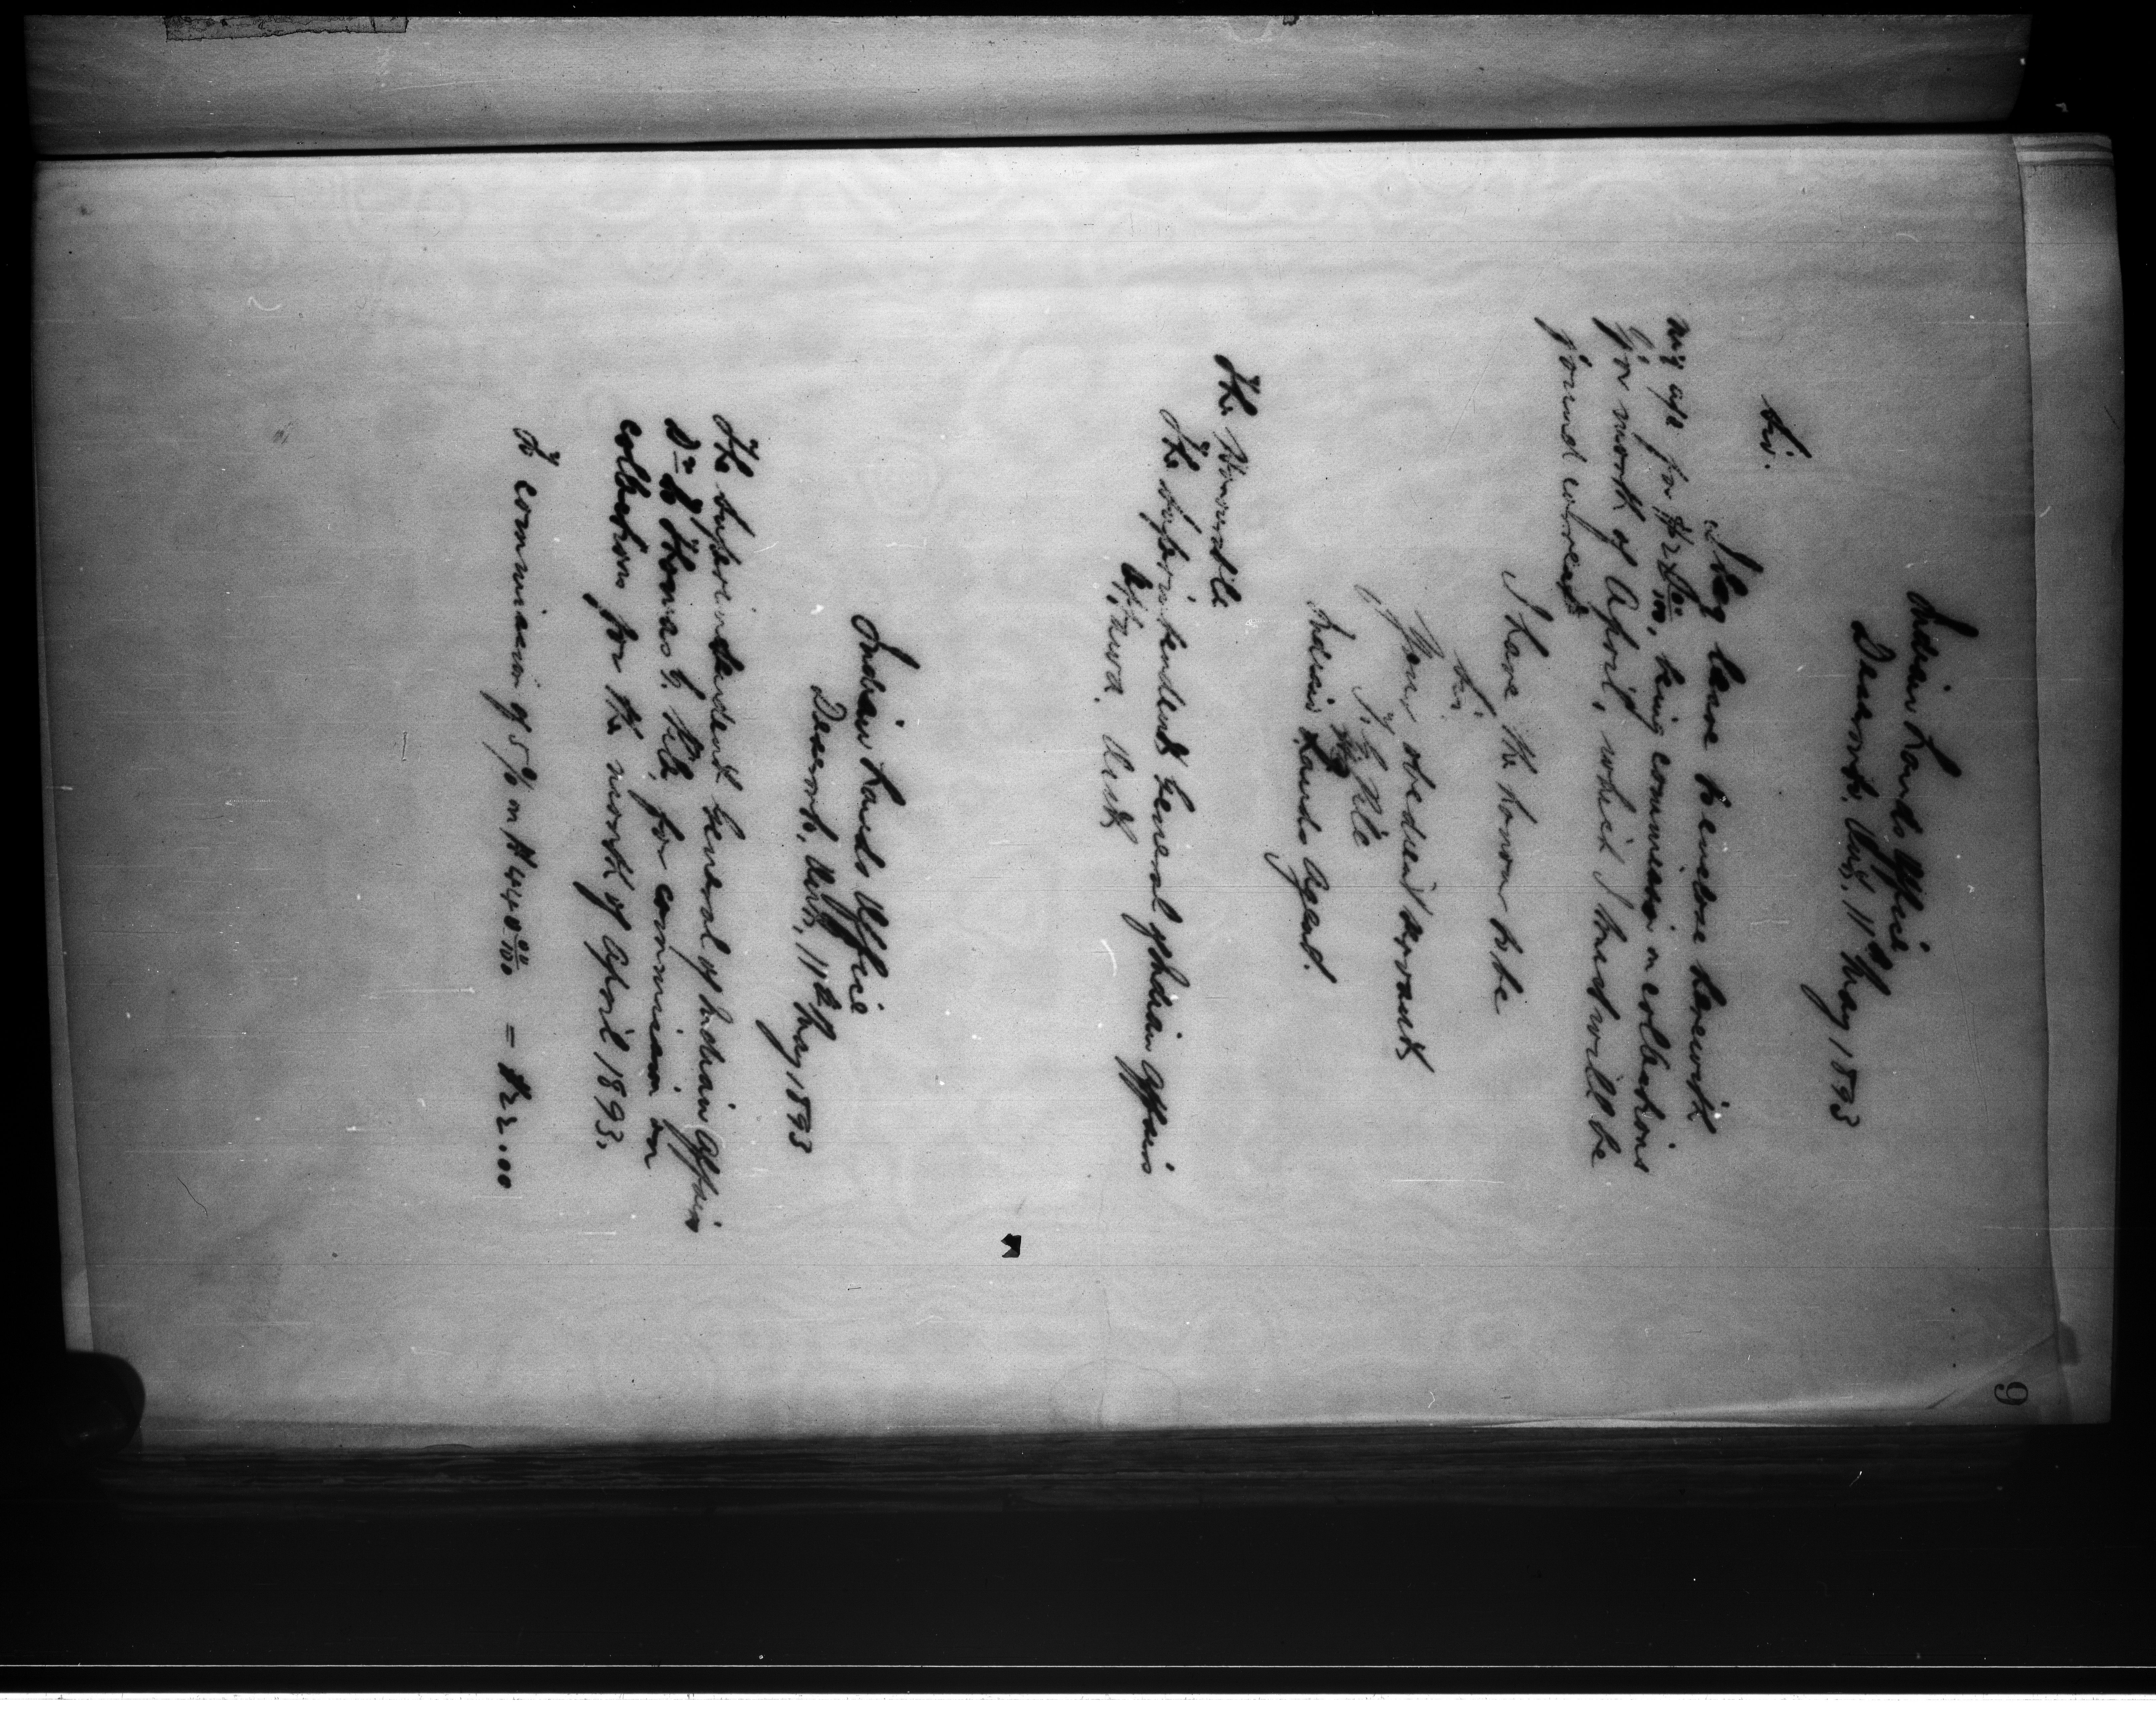 9
Indian Lands Office
Deseronto, Ont, 11th May 1893
Sir.
I beg leave to enclose herewith
my a/c for $22 00/100, being commission on collections
for month of April, which I trust will be
found correct
I have the honor to be
Sir
Your obedient servant
Indian Lands Agent.
The Honourable
The Superintendent General of Indian Affairs
Ottawa. Ont
Indian Lands Office
Deseronto, Ont, 11th May 1893
The Superintendent General of Indian Affairs
Dr to Thomas G. Pile, for commission on
collections for the month of April 1893.
To commission of 5% on $440 00/100 = $22.00